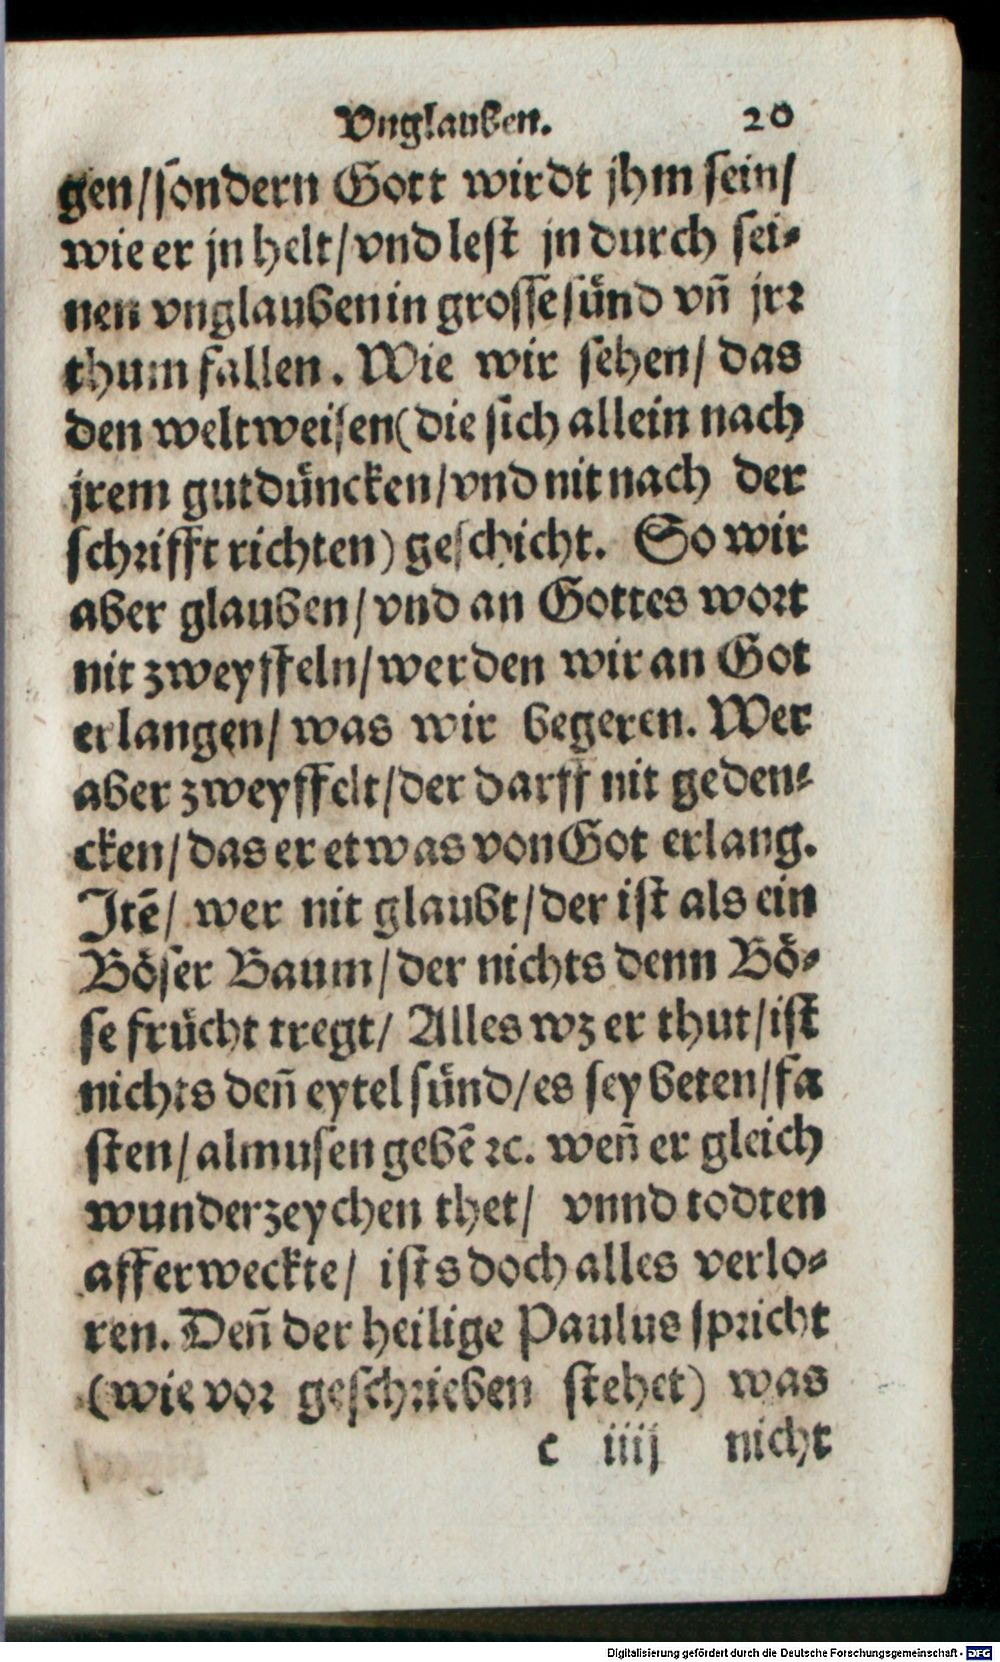 Vnglauben. 20
gen/sondern Gott wirdt jhm sein/
wie er jn helt/vnd lest jn durch sei-
nen vnglauben in grosse sünd vñ jrr
thum fallen. Wie wir sehen/ das
den weltweisen(die sich allein nach
jrem gutdüncken/vnd nit nach der
schrifft richten) geschicht. So wir
aber glauben/vnd an Gottes wort
nit zweyffeln/werden wir an Got
erlangen/ was wir begeren. Wer
aber zweyffelt/der darff nit geden-
cken/das er etwas von Got erlang.
Itē/ wer nit glaubt/der ist als ein
Böser Baum/der nichts denn Bö-
se frücht tregt/ Alles wz er thut/ist
nichts deñ eytel sünd/es sey beten/fa
sten/almusen gebē ꝛc. weñ er gleich
wunderzeychen thet/ vnnd todten
afferweckte/ ists doch alles verlo-
ren. Deñ der heilige Paulus spricht
(wie vor geschrieben stehet) was
c iiij nicht
Digitalisierung gefördert durch die Deutsche Forschungsgemeinschaft - DFG